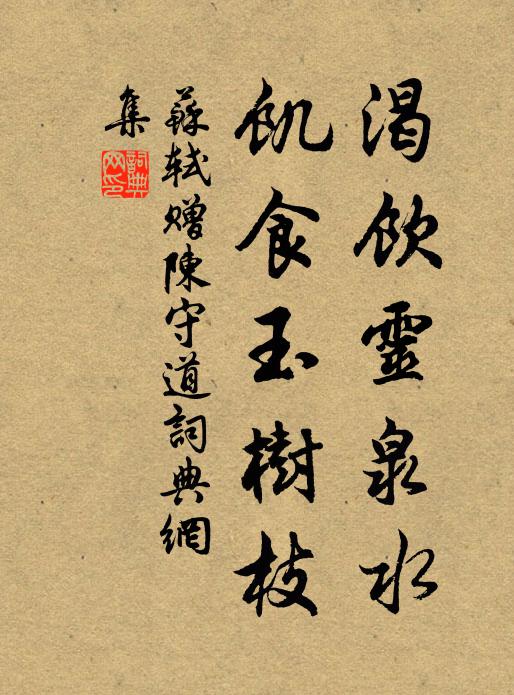 渴飲靈泉水
飢食玉樹枝
蘇軾贈陳守道詞典網
集
詞典網印